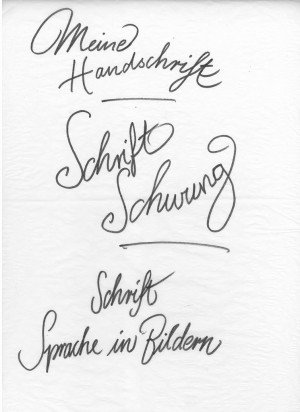 Meine
Handschrift
Schrift
Schwung
Schrift
Sprache in Bildern